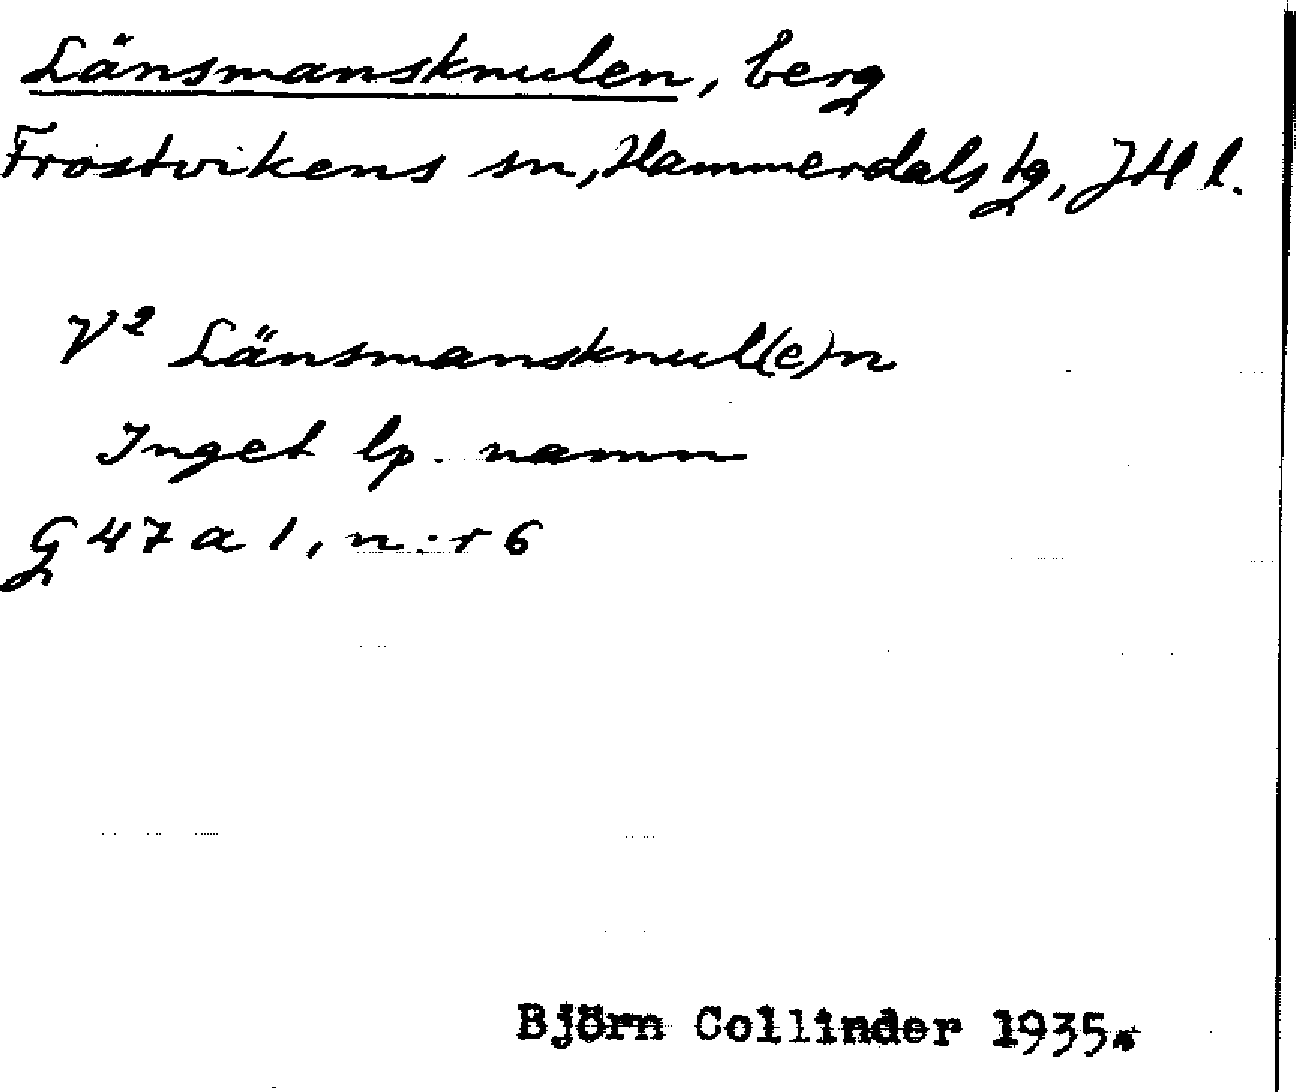 Länsmansknulen, berg
Frostvikens sn, Hammerdals tg, JHl.
V² Länsmansknul(e)n
Inget lp. namn
G 47 a 1, n:r 6
Björn Collinder 1935.